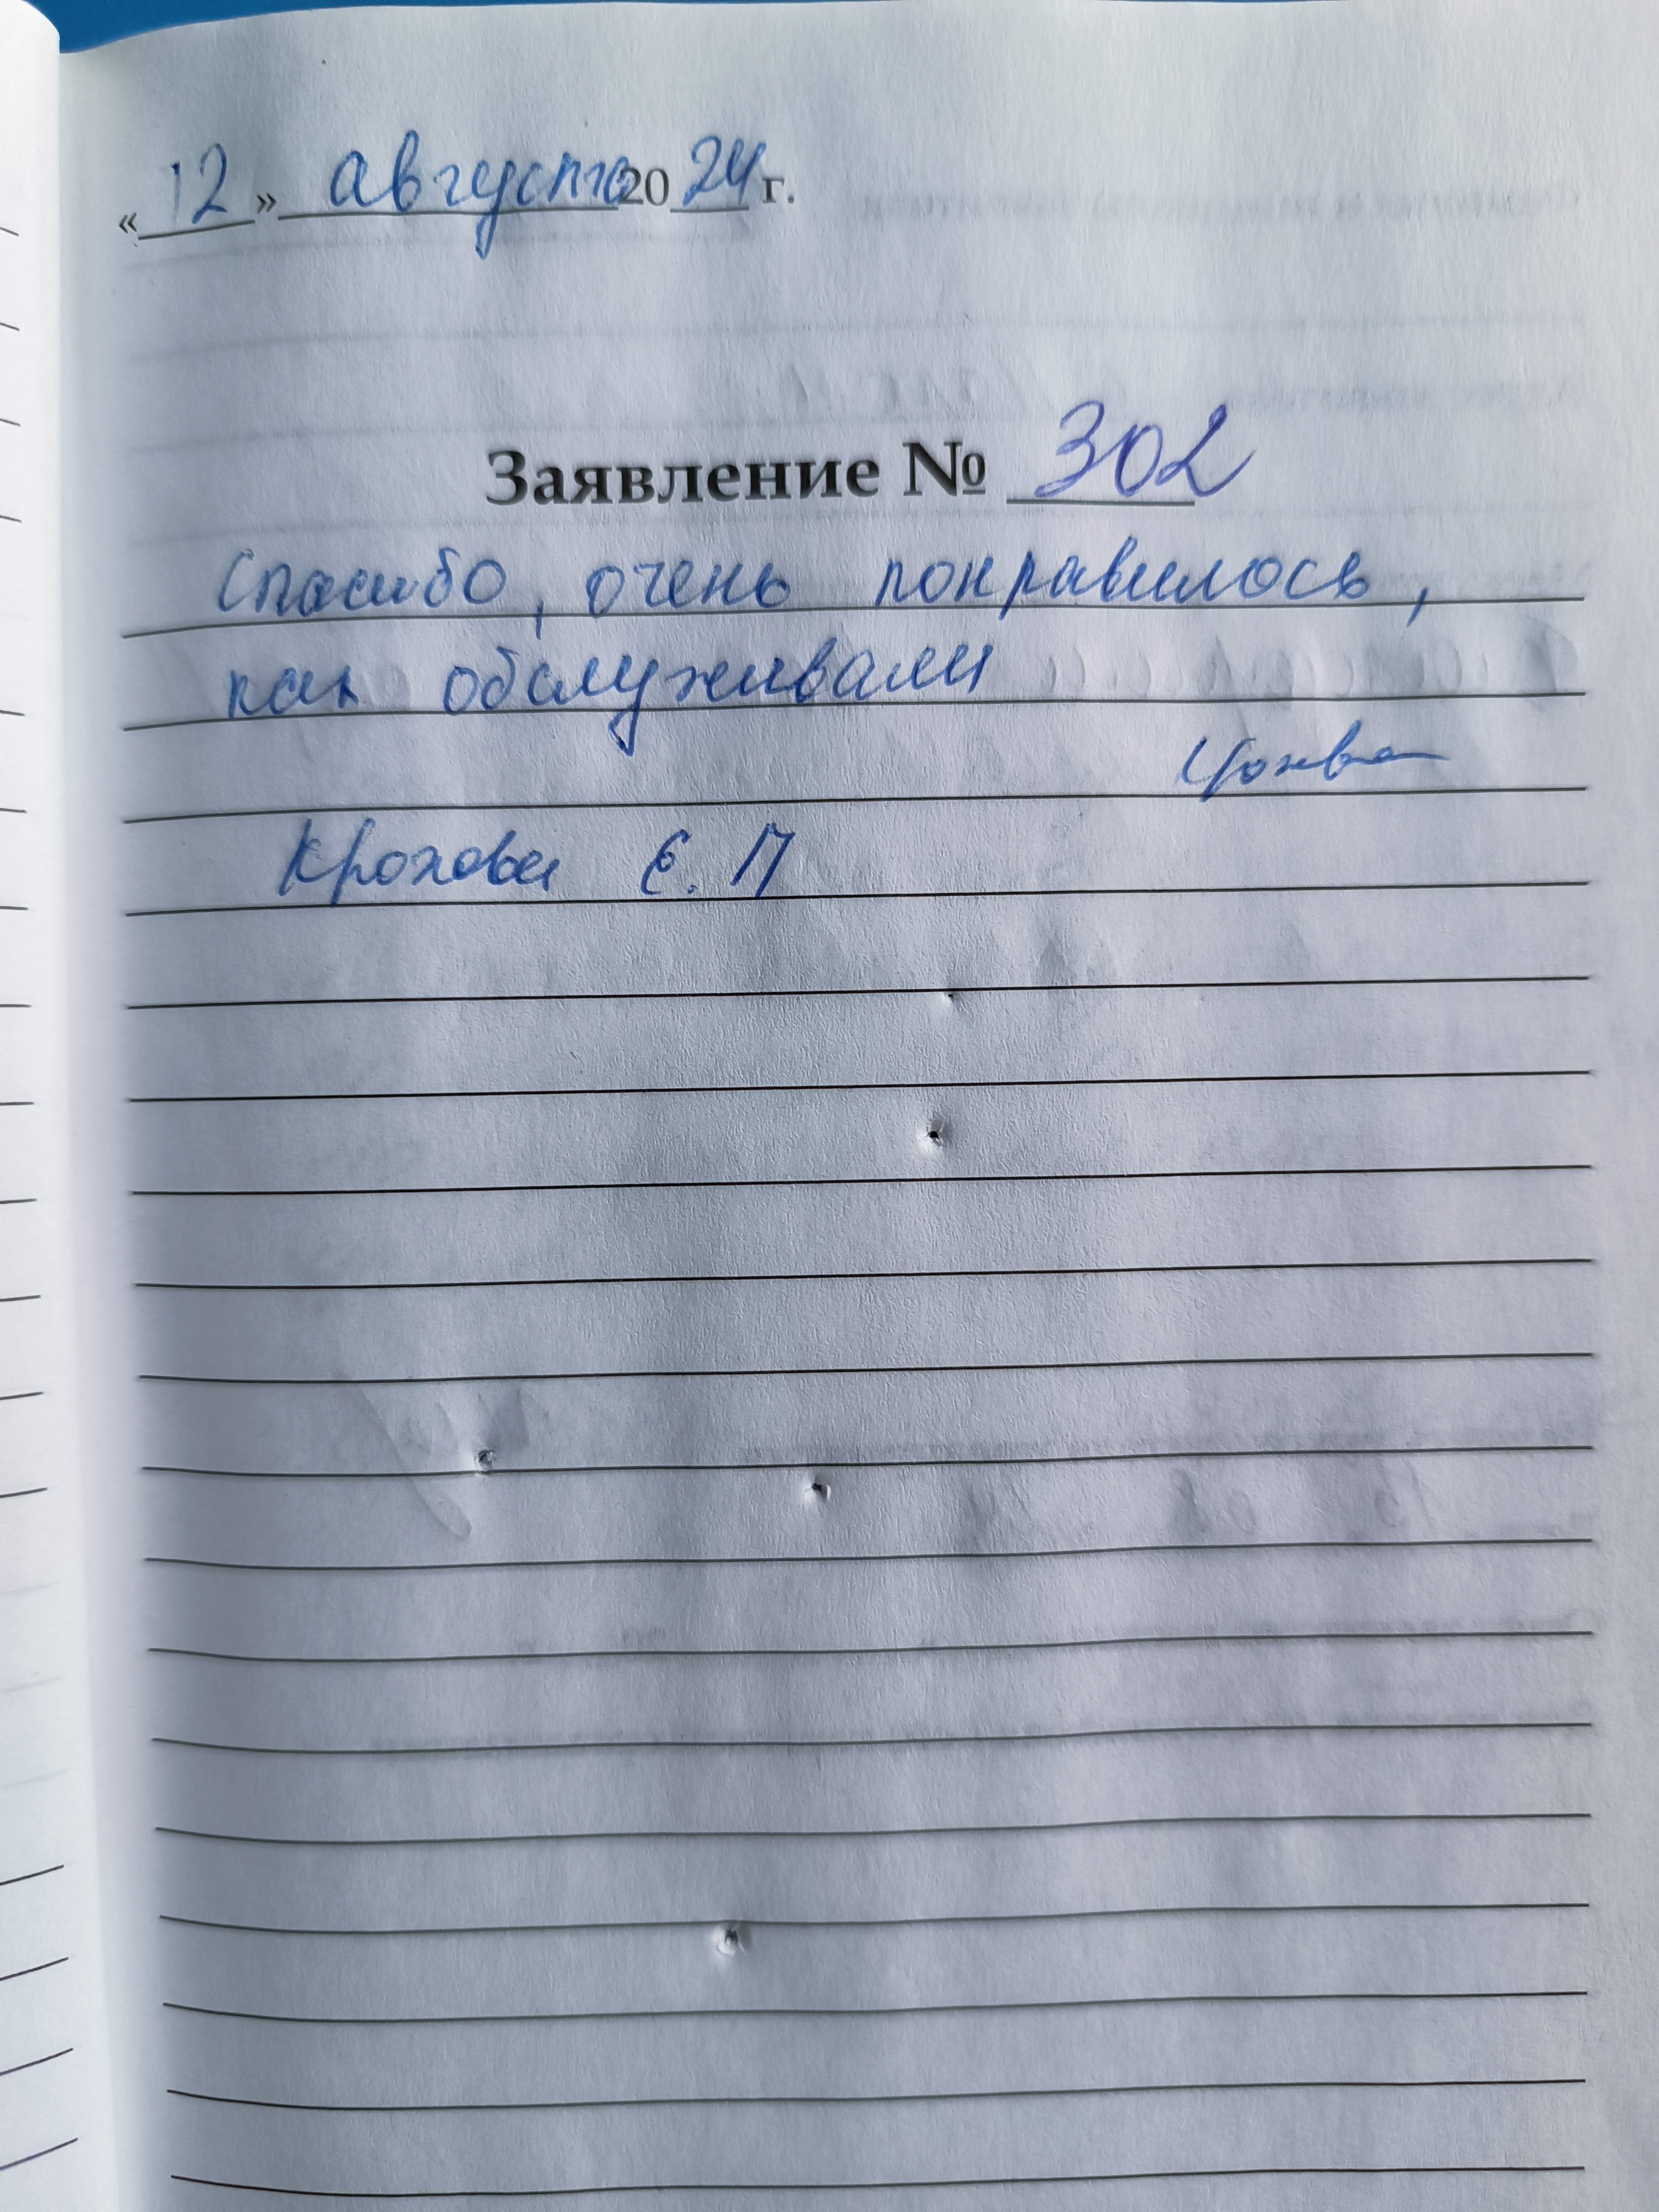 «12» августа 2024 г.
Заявление № 302
Спасибо, очень понравилось,
как обслуживали
Крохова Е. П